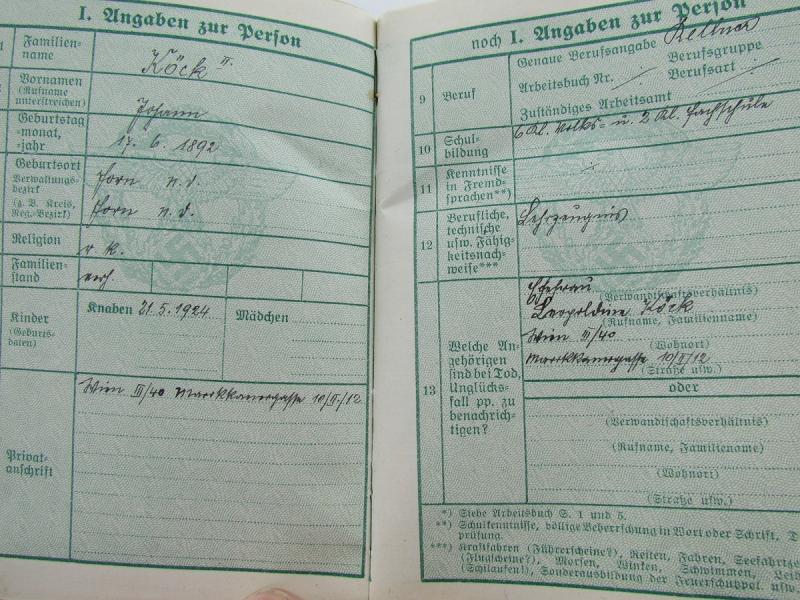 I. Angaben zur Person
1 Familien-
name
Köck II.
Vornamen
(Rufname
unterstreichen)
Johann
Geburtstag
-monat,
-jahr
17. 6. 1892
Geburtsort
Verwaltungs-
bezirk
(z. B. Kreis,
Reg.-Bezirk)
Horn n. d.
Horn n. d.
Religion
r. k.
Familien-
stand
verh.
Kinder
(Geburts-
daten)
Knaben 21.5.1924
Mädchen
Privat-
anschrift
Wien III/40 10/II/12
noch I. Angaben zur Person
9 Beruf
Genaue Berufsangabe Kellner
Arbeitsbuch Nr. Berufsgruppe
Berufsart
Zuständiges Arbeitsamt
10 Schul-
bildung
6 Kl. Volks- u. 2 Kl. Fachschule
11 Kenntnisse
in Fremd-
sprachen**)
12 Berufliche,
technische
usw. Fähig-
keitsnach-
weise***
Lehrzeugnis
13 Welche An-
gehörigen
sind bei Tod,
Unglücks-
fall pp. zu
benachrich-
tigen?
Ehefrau
(Verwandtschaftsverhältnis)
Leopoldine Köck
(Rufname, Familienname)
Wien III/40
(Wohnort)
10/II/12
(Straße usw.)
oder
(Verwandtschaftsverhältnis)
(Rufname, Familienname)
(Wohnort)
(Straße usw.)
*) Siehe Arbeitsbuch S. 1 und 5.
**) Schulkenntnisse, völlige Beherrschung in Wort oder Schrift,
prüfung.
***) Kraftfahren (Führerscheine?), Reiten, Fahren,
(Flugscheine?), Morsen, Winken, Schwimmen,
(Schilaufen!), Sonderausbildung der Feuerschutzpol. usw.